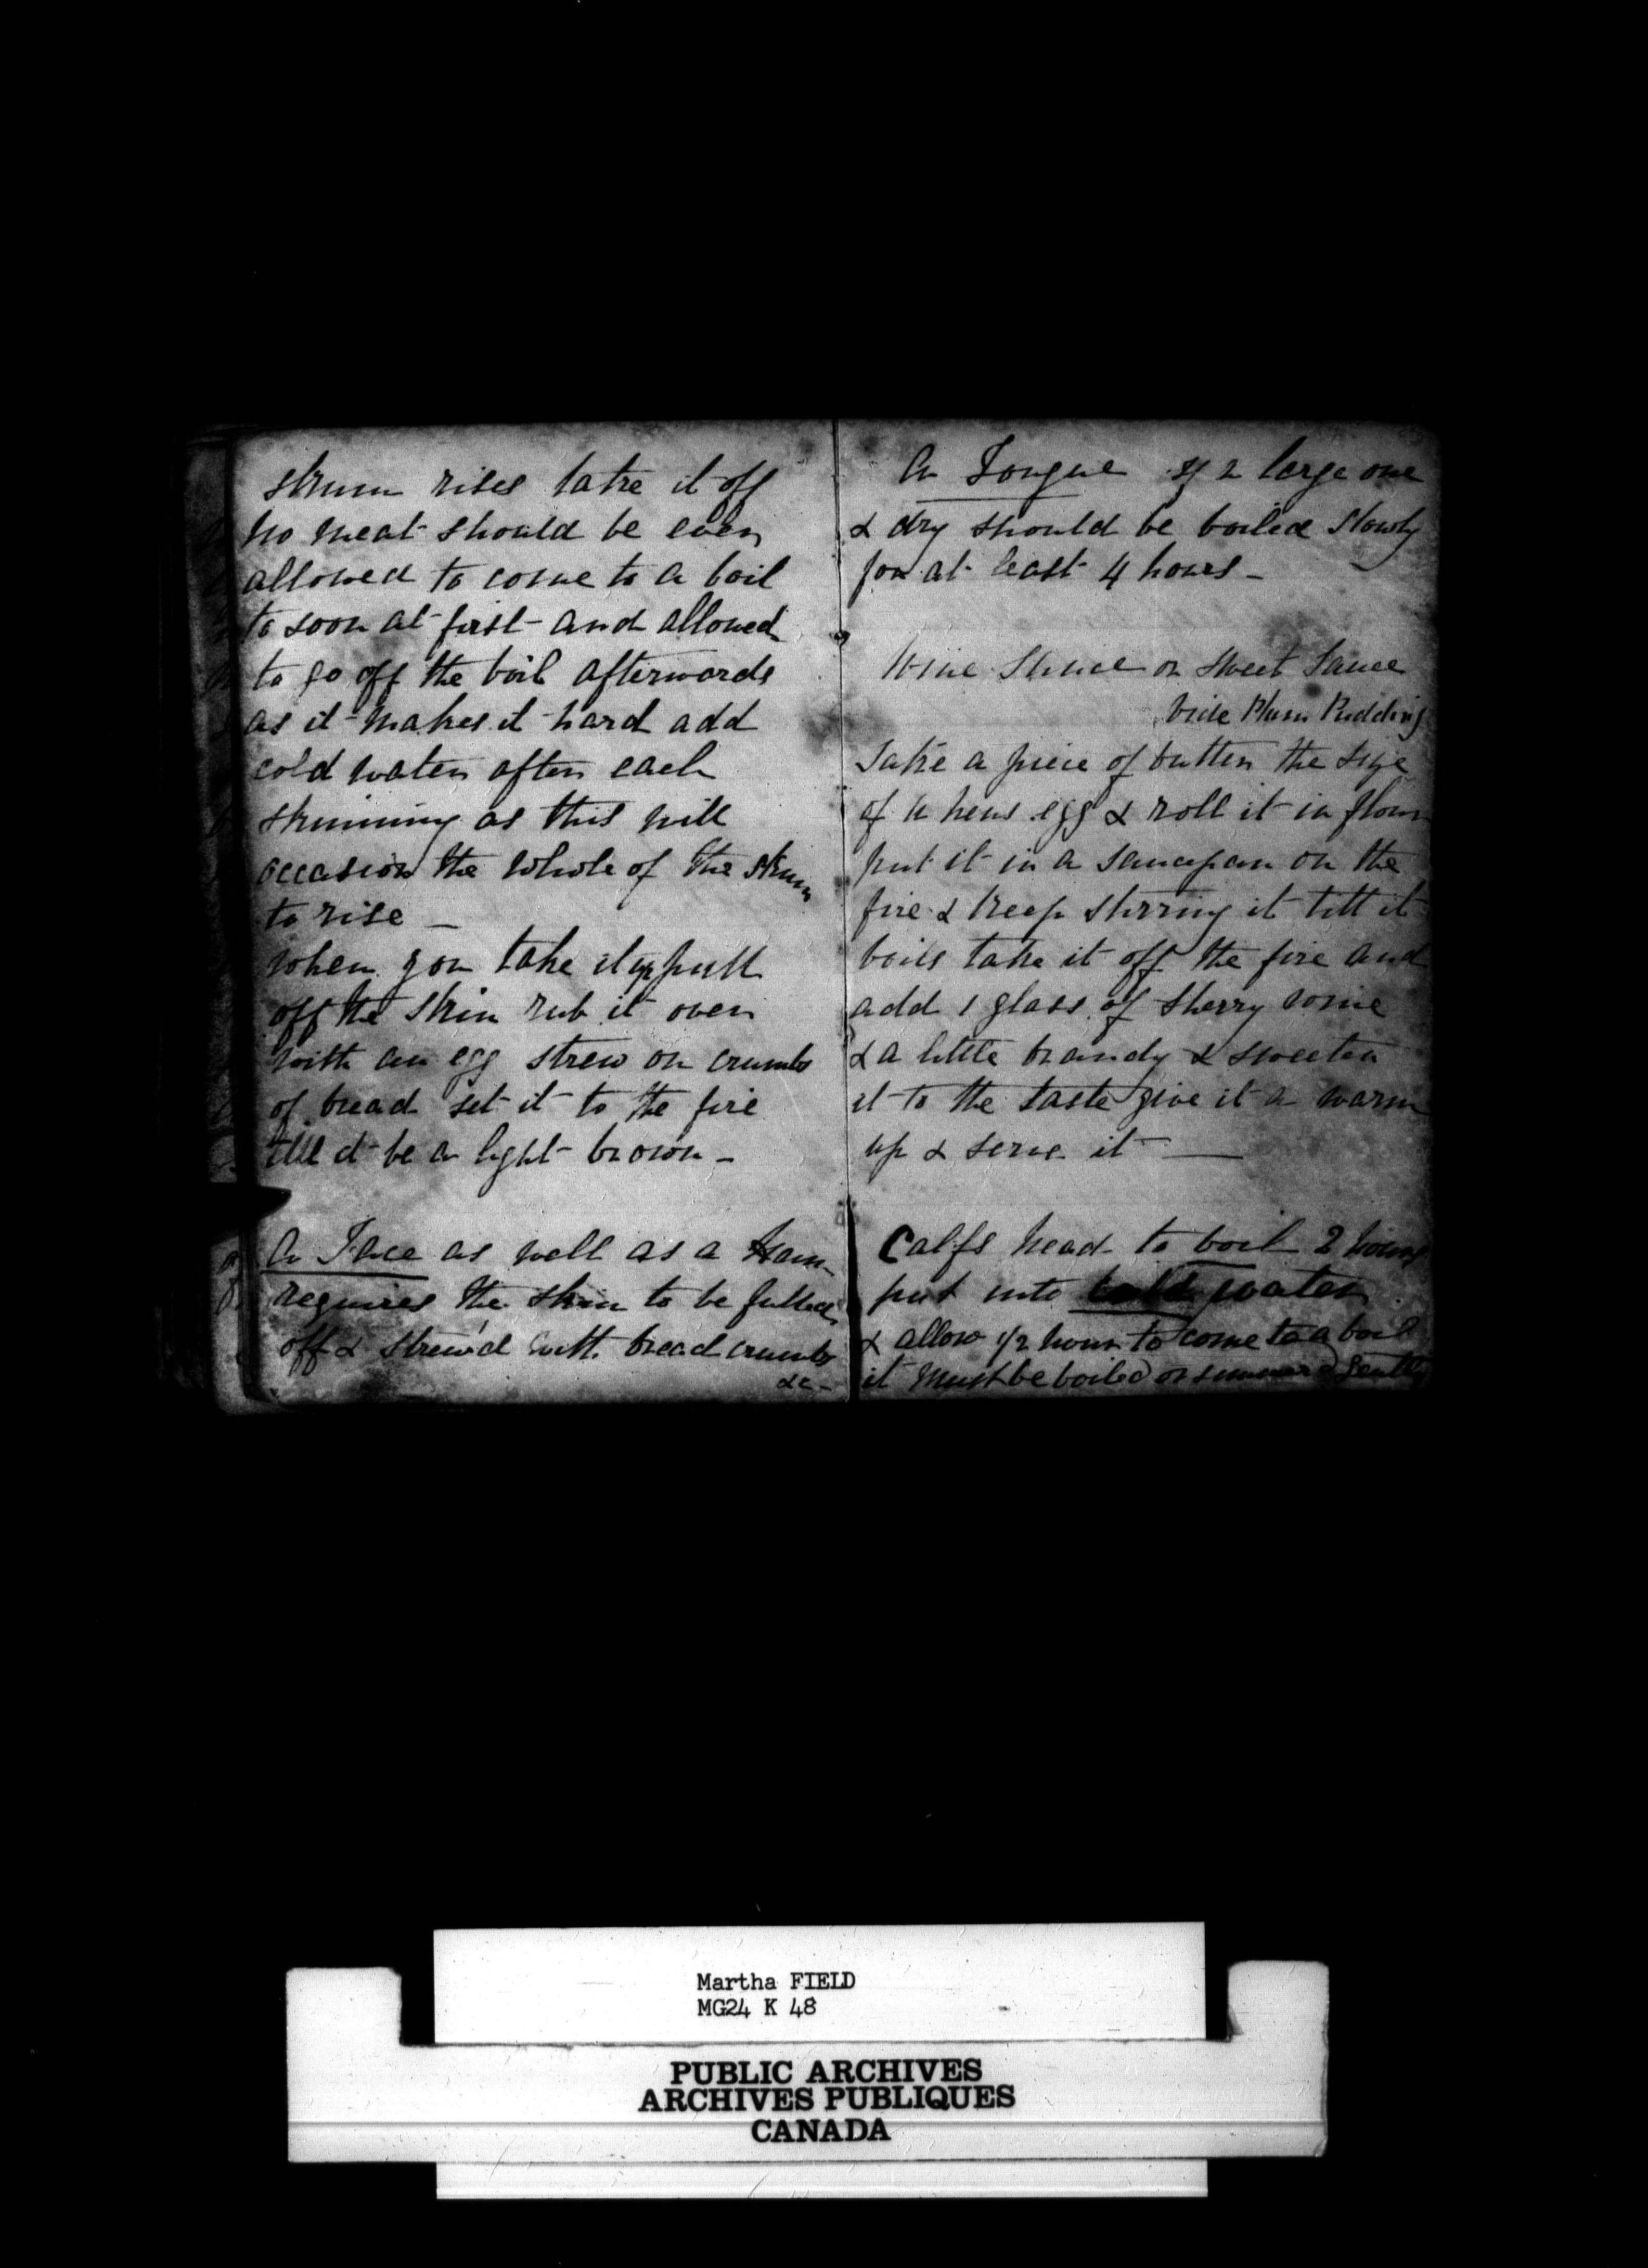 skum rises take it off
no meat should be even
allowed to come to a boil
to soon at first and allowed
to go off the boil afterwards
as it makes it hard add
cold water after each
skimming as this will
occasion the whole of the skum
to rise —
when you take it up pull
off the skin rub it over
with an egg strew on crumbs
of bread set it to the fire
till it be a light brown —
A Face as well as a Ham
requires the skin to be pulled
off & strew'd with bread crumbs
&c —
A Tongue if a large one
& dry should be boiled slowly
for at least 4 hours —
Wine Sauce or sweet Sauce
vide Plum Pudding
Take a piece of butter the size
of a hens egg & roll it in flour
put it in a saucepan on the
fire & keep stirring it till it
boils take it off the fire and
add 1 glass of sherry wine
& a little brandy & sweeten
it to the taste give it a warm
up & serve it —
Calfs head to boil 2 hours
put into cold water
& allow 1/2 hour to come to a boil
it must be boiled or simmer'd gently
Martha FIELD
MG24 K 48
PUBLIC ARCHIVES
ARCHIVES PUBLIQUES
CANADA